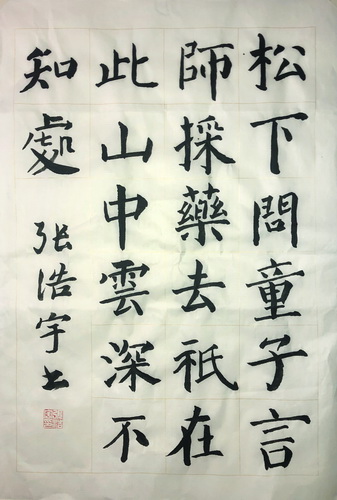 松下問童子言
師採藥去祇在
此山中雲深不
知處
张浩宇书